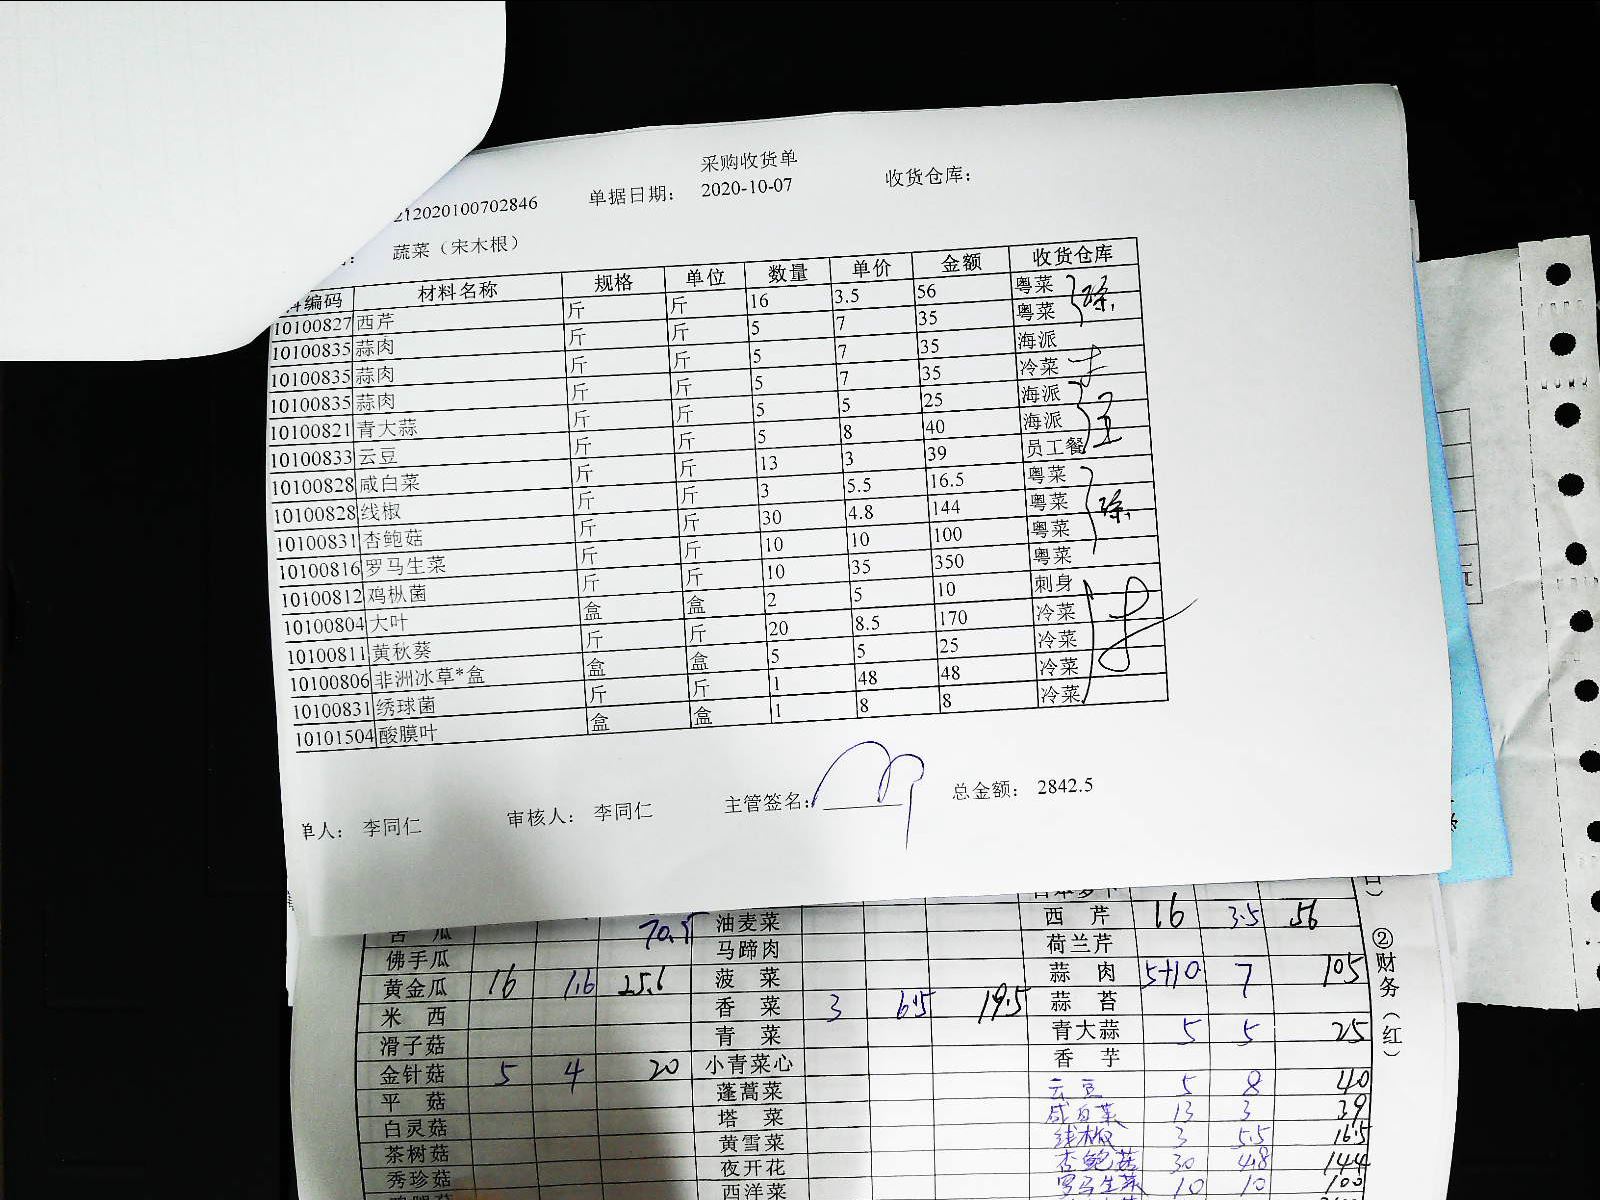 采购收货单
212020100702846 单据日期： 2020-10-07 收货仓库：
蔬菜（宋木根）
编码 材料名称 规格 单位 数量 单价 金额 收货仓库
10100827 西芹 斤 斤 16 3.5 56 粤菜
10100835 蒜肉 斤 斤 5 7 35 粤菜
10100835 蒜肉 斤 斤 5 7 35 海派
10100835 蒜肉 斤 斤 5 7 35 冷菜
10100821 青大蒜 斤 斤 5 5 25 海派
10100833 云豆 斤 斤 5 8 40 海派
10100828 咸白菜 斤 斤 13 3 39 员工餐
10100828 线椒 斤 斤 3 5.5 16.5 粤菜
10100831 杏鲍菇 斤 斤 30 4.8 144 粤菜
10100816 罗马生菜 斤 斤 10 10 100 粤菜
10100812 鸡枞菌 斤 斤 10 35 350 粤菜
10100804 大叶 盒 盒 2 5 10 刺身
10100811 黄秋葵 斤 斤 20 8.5 170 冷菜
10100806 非洲冰草*盒 盒 盒 5 5 25 冷菜
10100831 绣球菌 斤 斤 1 48 48 冷菜
10101504 酸膜叶 盒 盒 1 8 8 冷菜
单人： 李同仁 审核人： 李同仁 主管签名： 总金额： 2842.5
苦 瓜 油麦菜 西 芹 16 3.5 56
佛手瓜 马蹄肉 荷兰芹
黄金瓜 16 1.6 25.6 菠 菜 蒜 肉 5+10 7 105
米 西 香 菜 3 6.5 19.5 蒜 苔
滑子菇 青 菜 青大蒜 5 5 25
金针菇 5 4 20 小青菜心 香 芋
平 菇 蓬蒿菜 云豆 5 8 40
白灵菇 塔 菜 咸白菜 13 3 39
茶树菇 黄雪菜 线椒 3 5.5 16.5
秀珍菇 夜开花 杏鲍菇 30 4.8 144
西洋菜 罗马生菜 10 10 100
②财务（红）